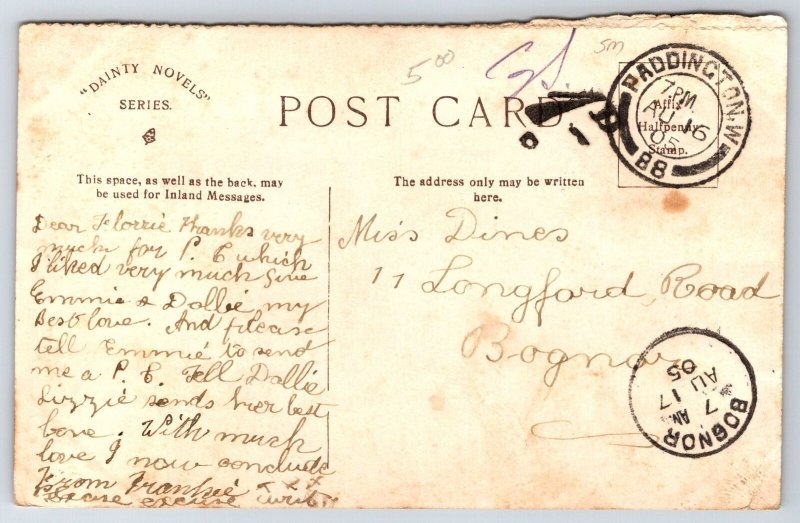 "DAINTY NOVELS"
SERIES.
POST CARD
5 00
PADDINGTON.W.
7.PM
AU 16
05
88
Affix
Halfpenny
Stamp.
This space, as well as the back, may
be used for Inland Messages.
The address only may be written
here.
Dear Florrie thanks very
much for P. C which
I liked very much Give
Emmie & Dollie my
Best love. And please
tell Emmie to send
me a P. C. Tell Dollie
Lizzie sends her best
love. With much
love I now conclude
From Frankie x x x
excuse writ
Miss Dines
11 Longford Road
Bognor
BOGNOR
7 AM
AU 17
05